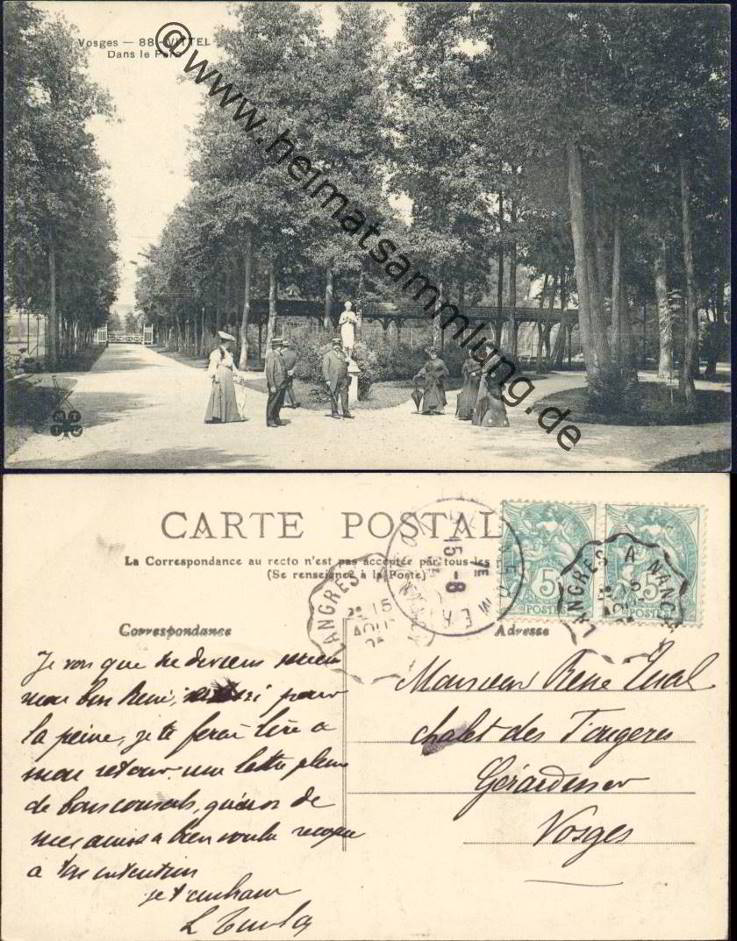 Vosges — 88. VITTEL
Dans le Parc
© www.heimatsammlung.de
CARTE POSTALE
La Correspondance au recto n'est pas acceptée par tous les
(Se renseigner à la Poste)
Correspondance
Adresse
LANGRES A NANCY
15
AOUT
LANGRES A NANCY
15
AOUT
15 - 8
5
POSTES
5
POSTES
Je vois que tu deviens
mon bon René, aussi pour
la peine, je te ferai lire à
mon retour une lettre pleine
de bons conseils, qu'un de
mes amis a bien voulu
à ton intention
je t'embrasse
Monsieur René
chalet des Fougères
Gérardmer
Vosges